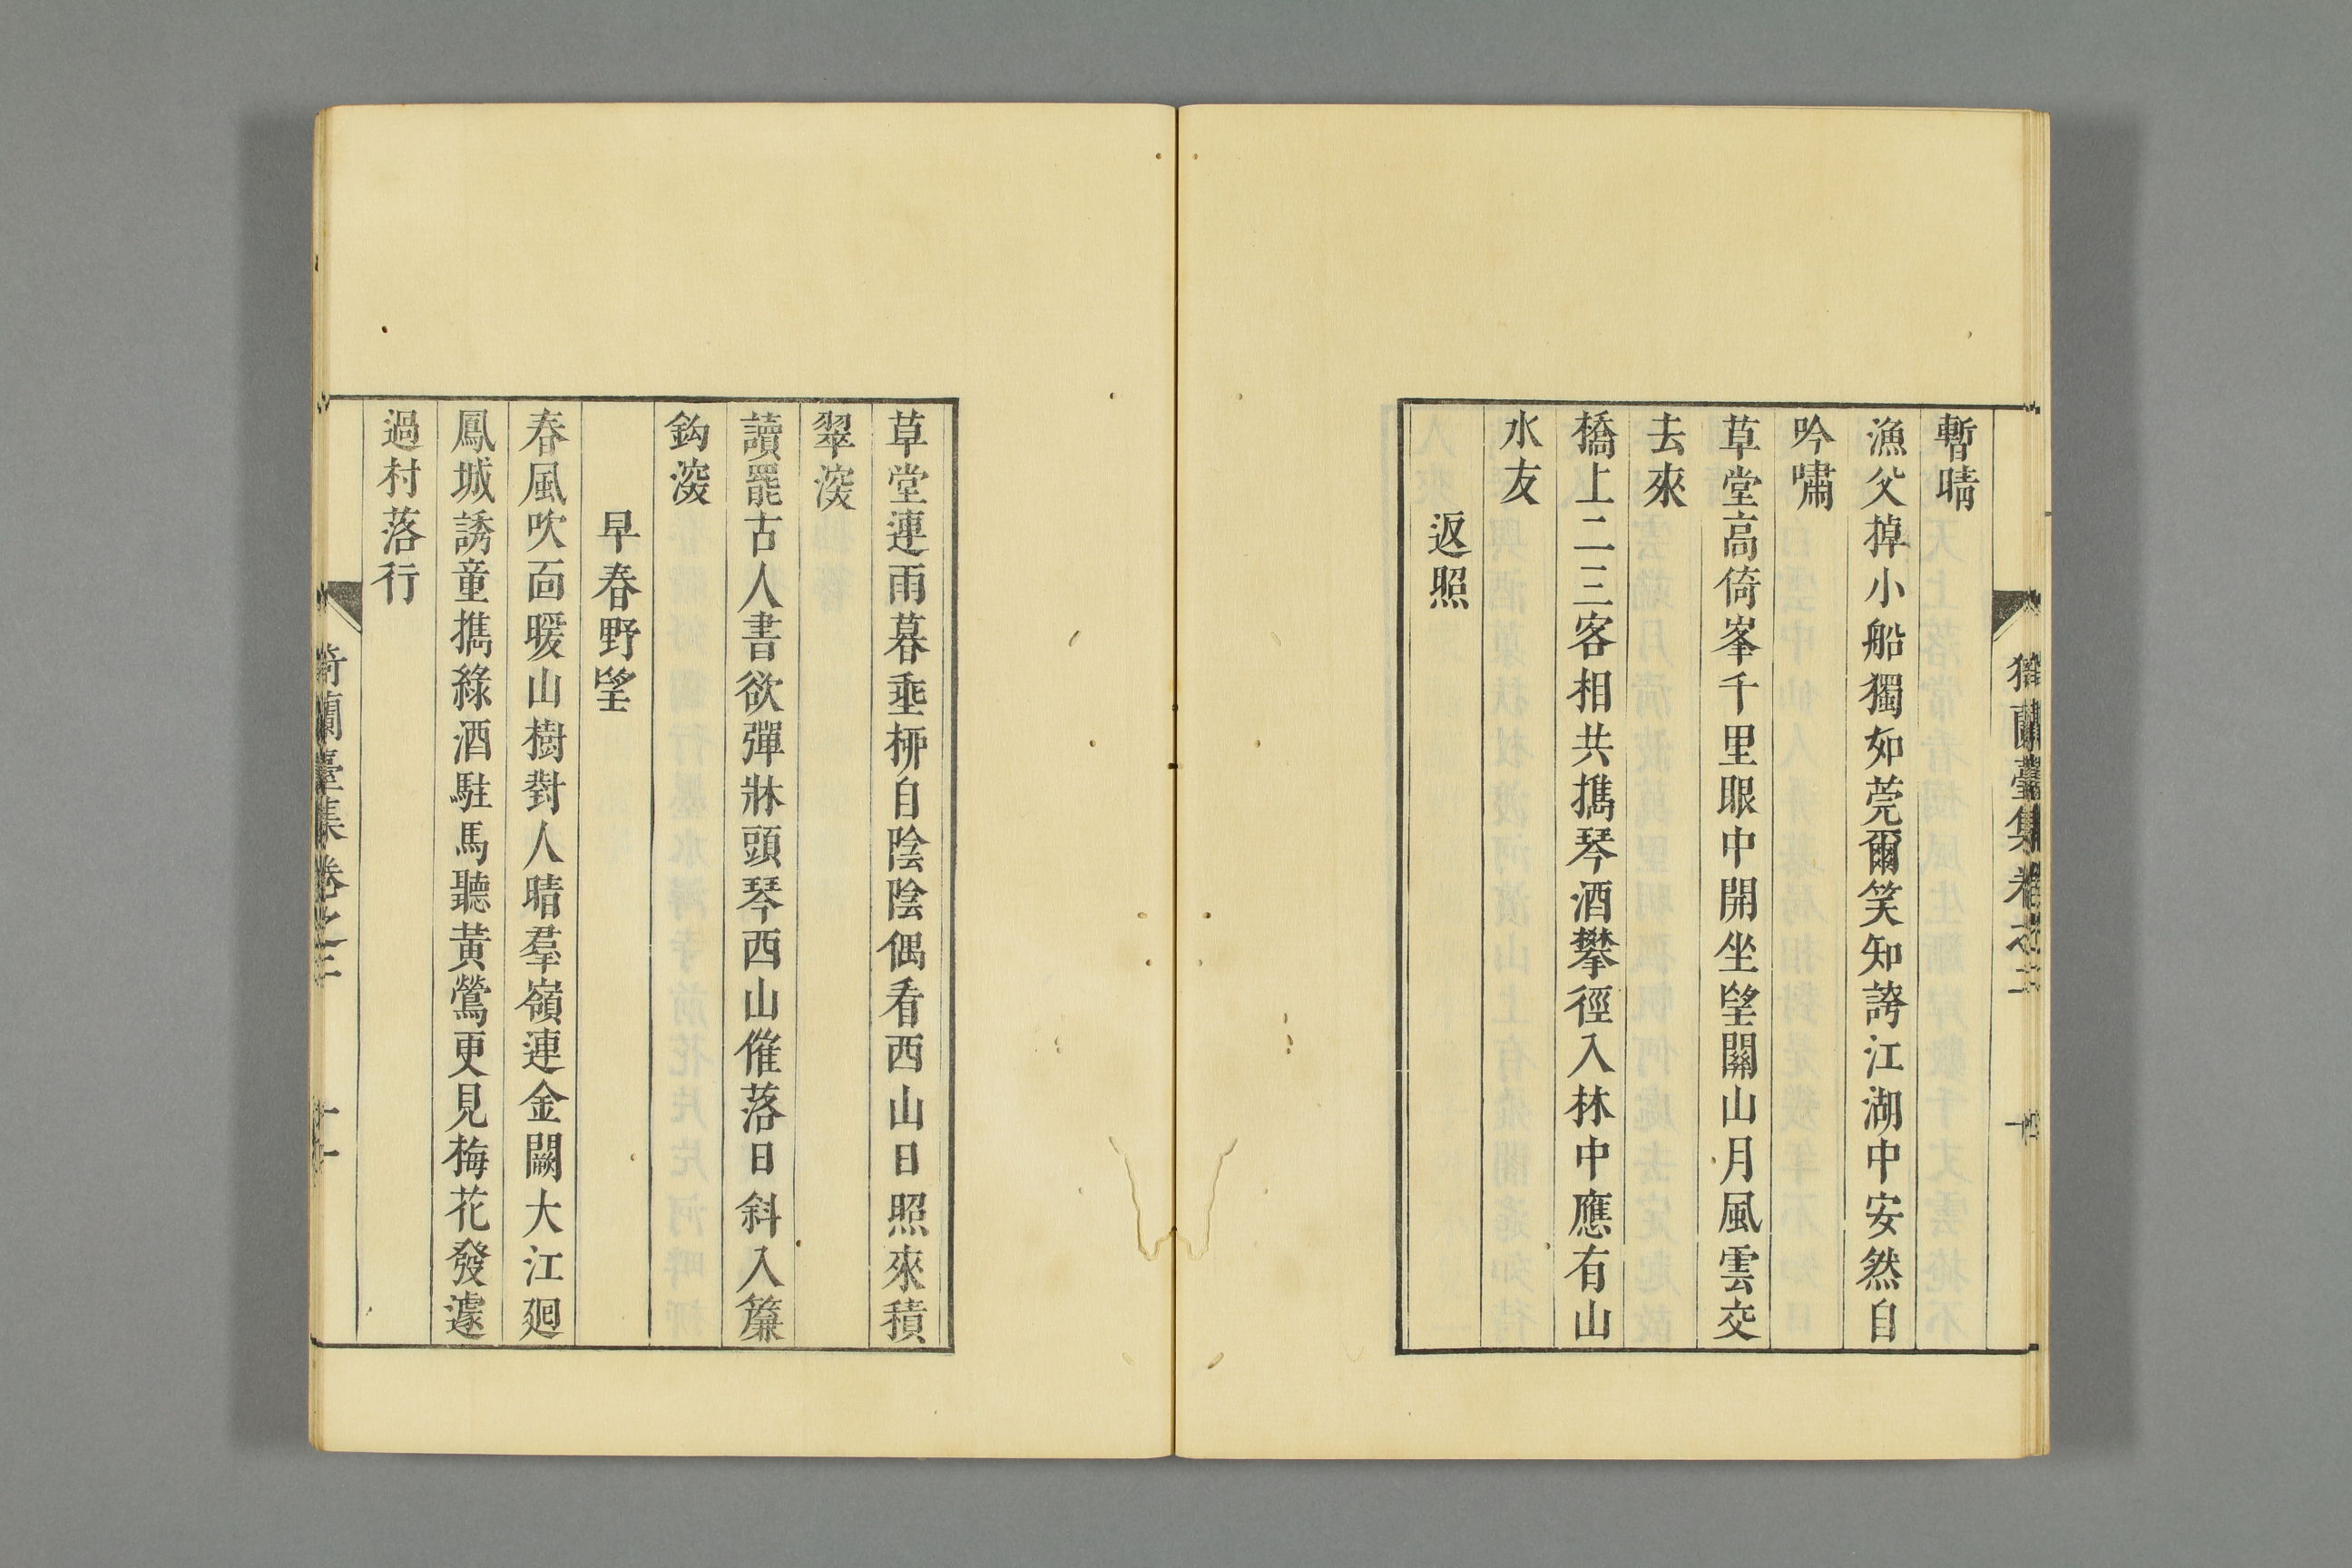 暫晴
漁父掉小船獨如莞爾笑知誇江湖中安然自
吟嘯
草堂高倚峯千里眼中開坐望關山月風雲交
去來
橋上二三客相共携琴酒攀徑入林中應有山
水友
返照
草堂連雨暮垂柳自陰陰偶看西山日照來積
翠深
讀罷古人書欲彈牀頭琴西山催落日斜入簾
鈎深
早春野望
春風吹面暖山樹對人晴羣嶺連金闕大江廻
鳳城誘童携綠酒駐馬聽黃鶯更見梅花發遽
過村落行
猗蘭臺集卷之二